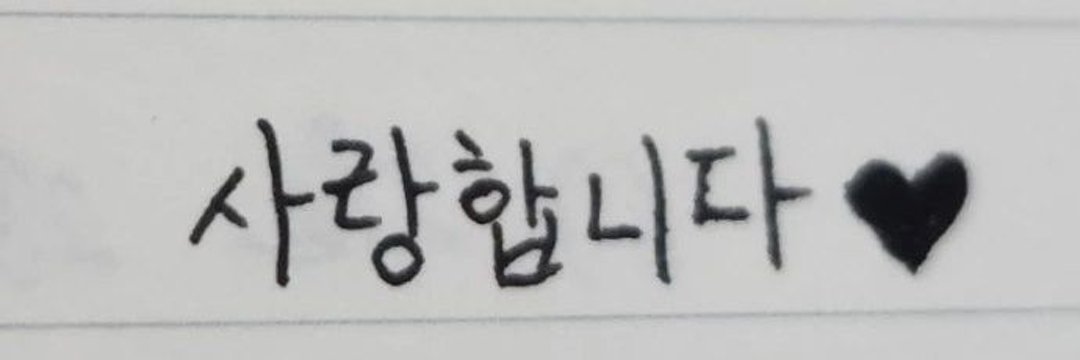 사랑합니다♥